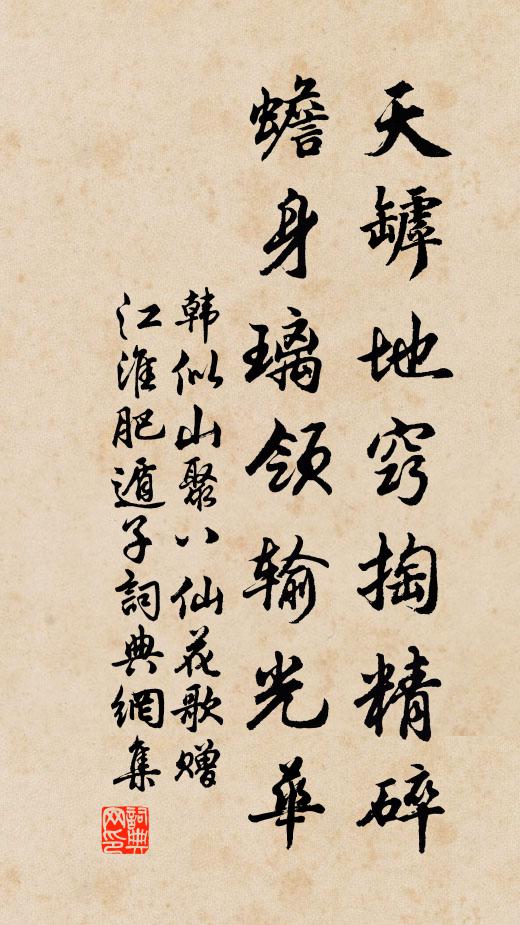 天罅地窍掏精碎
蟾身璃领输光华
韩似山聚八仙花歌赠
江淮肥遁子詞典網集
詞典网印